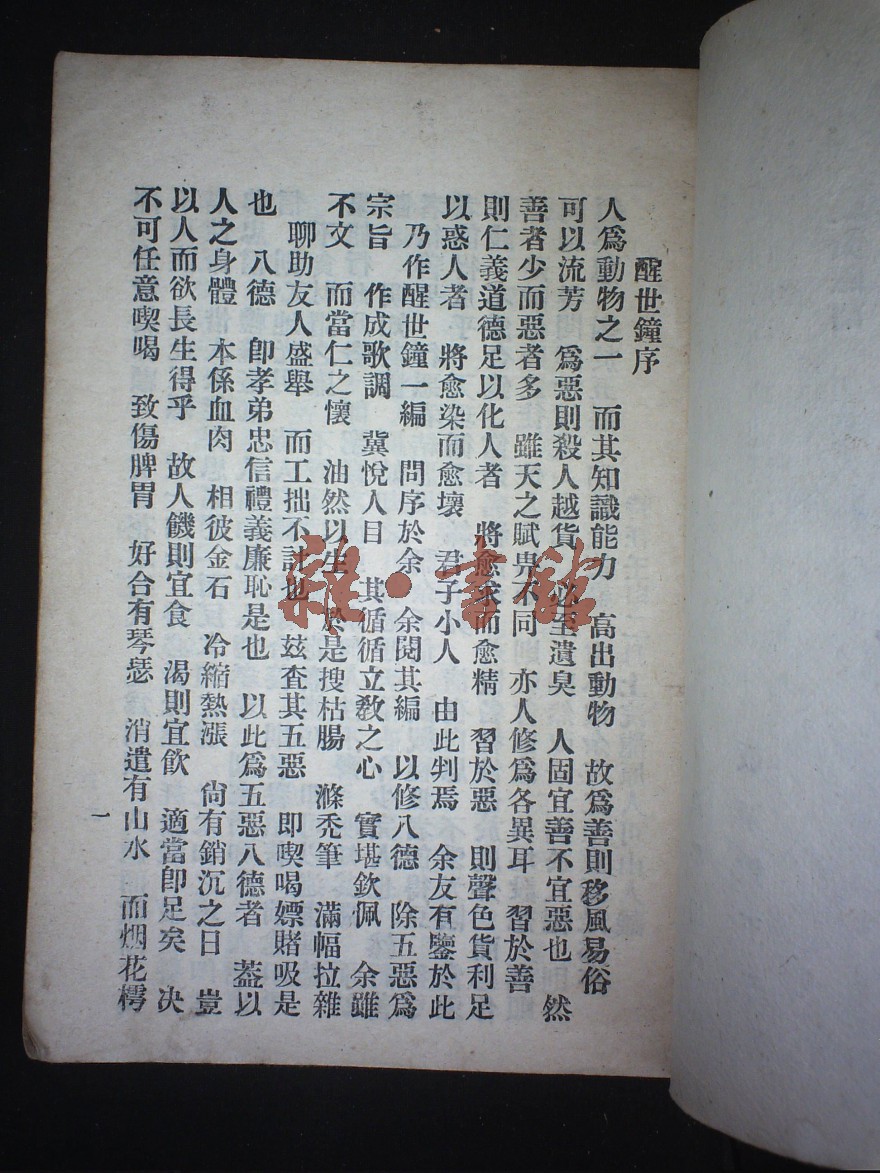 醒世鐘序
人爲動物之一　而其知識能力　高出動物　故爲善則移風易俗
可以流芳　爲惡則殺人越貨　必至遺臭　人固宜善不宜惡也　然
善者少而惡者多　雖天之賦畀不同　亦人修爲各異耳　習於善
則仁義道德足以化人者　將愈求而愈精　習於惡　則聲色貨利足
以惑人者　將愈染而愈壞　君子小人　由此判焉　余友有鑒於此
乃作醒世鐘一編　問序於余　余閱其編　以修八德　除五惡爲
宗旨　作成歌調　冀悅人目　其循循立敎之心　實堪欽佩　余雖
不文　而當仁之懷　油然以生　於是搜枯腸　滌禿筆　滿幅拉雜
聊助友人盛舉　而工拙不計也　玆査其五惡　即喫喝嫖賭吸是
也　八德　卽孝弟忠信禮義廉恥是也　以此爲五惡八德者　葢以
人之身體　本係血肉　相彼金石　冷縮熱漲　尙有銷沉之日　豈
以人而欲長生得乎　故人饑則宜食　渴則宜飮　適當卽足矣　决
不可任意喫喝　致傷脾胃　好合有琴瑟　消遣有山水　而烟花樗
一
雜·書館